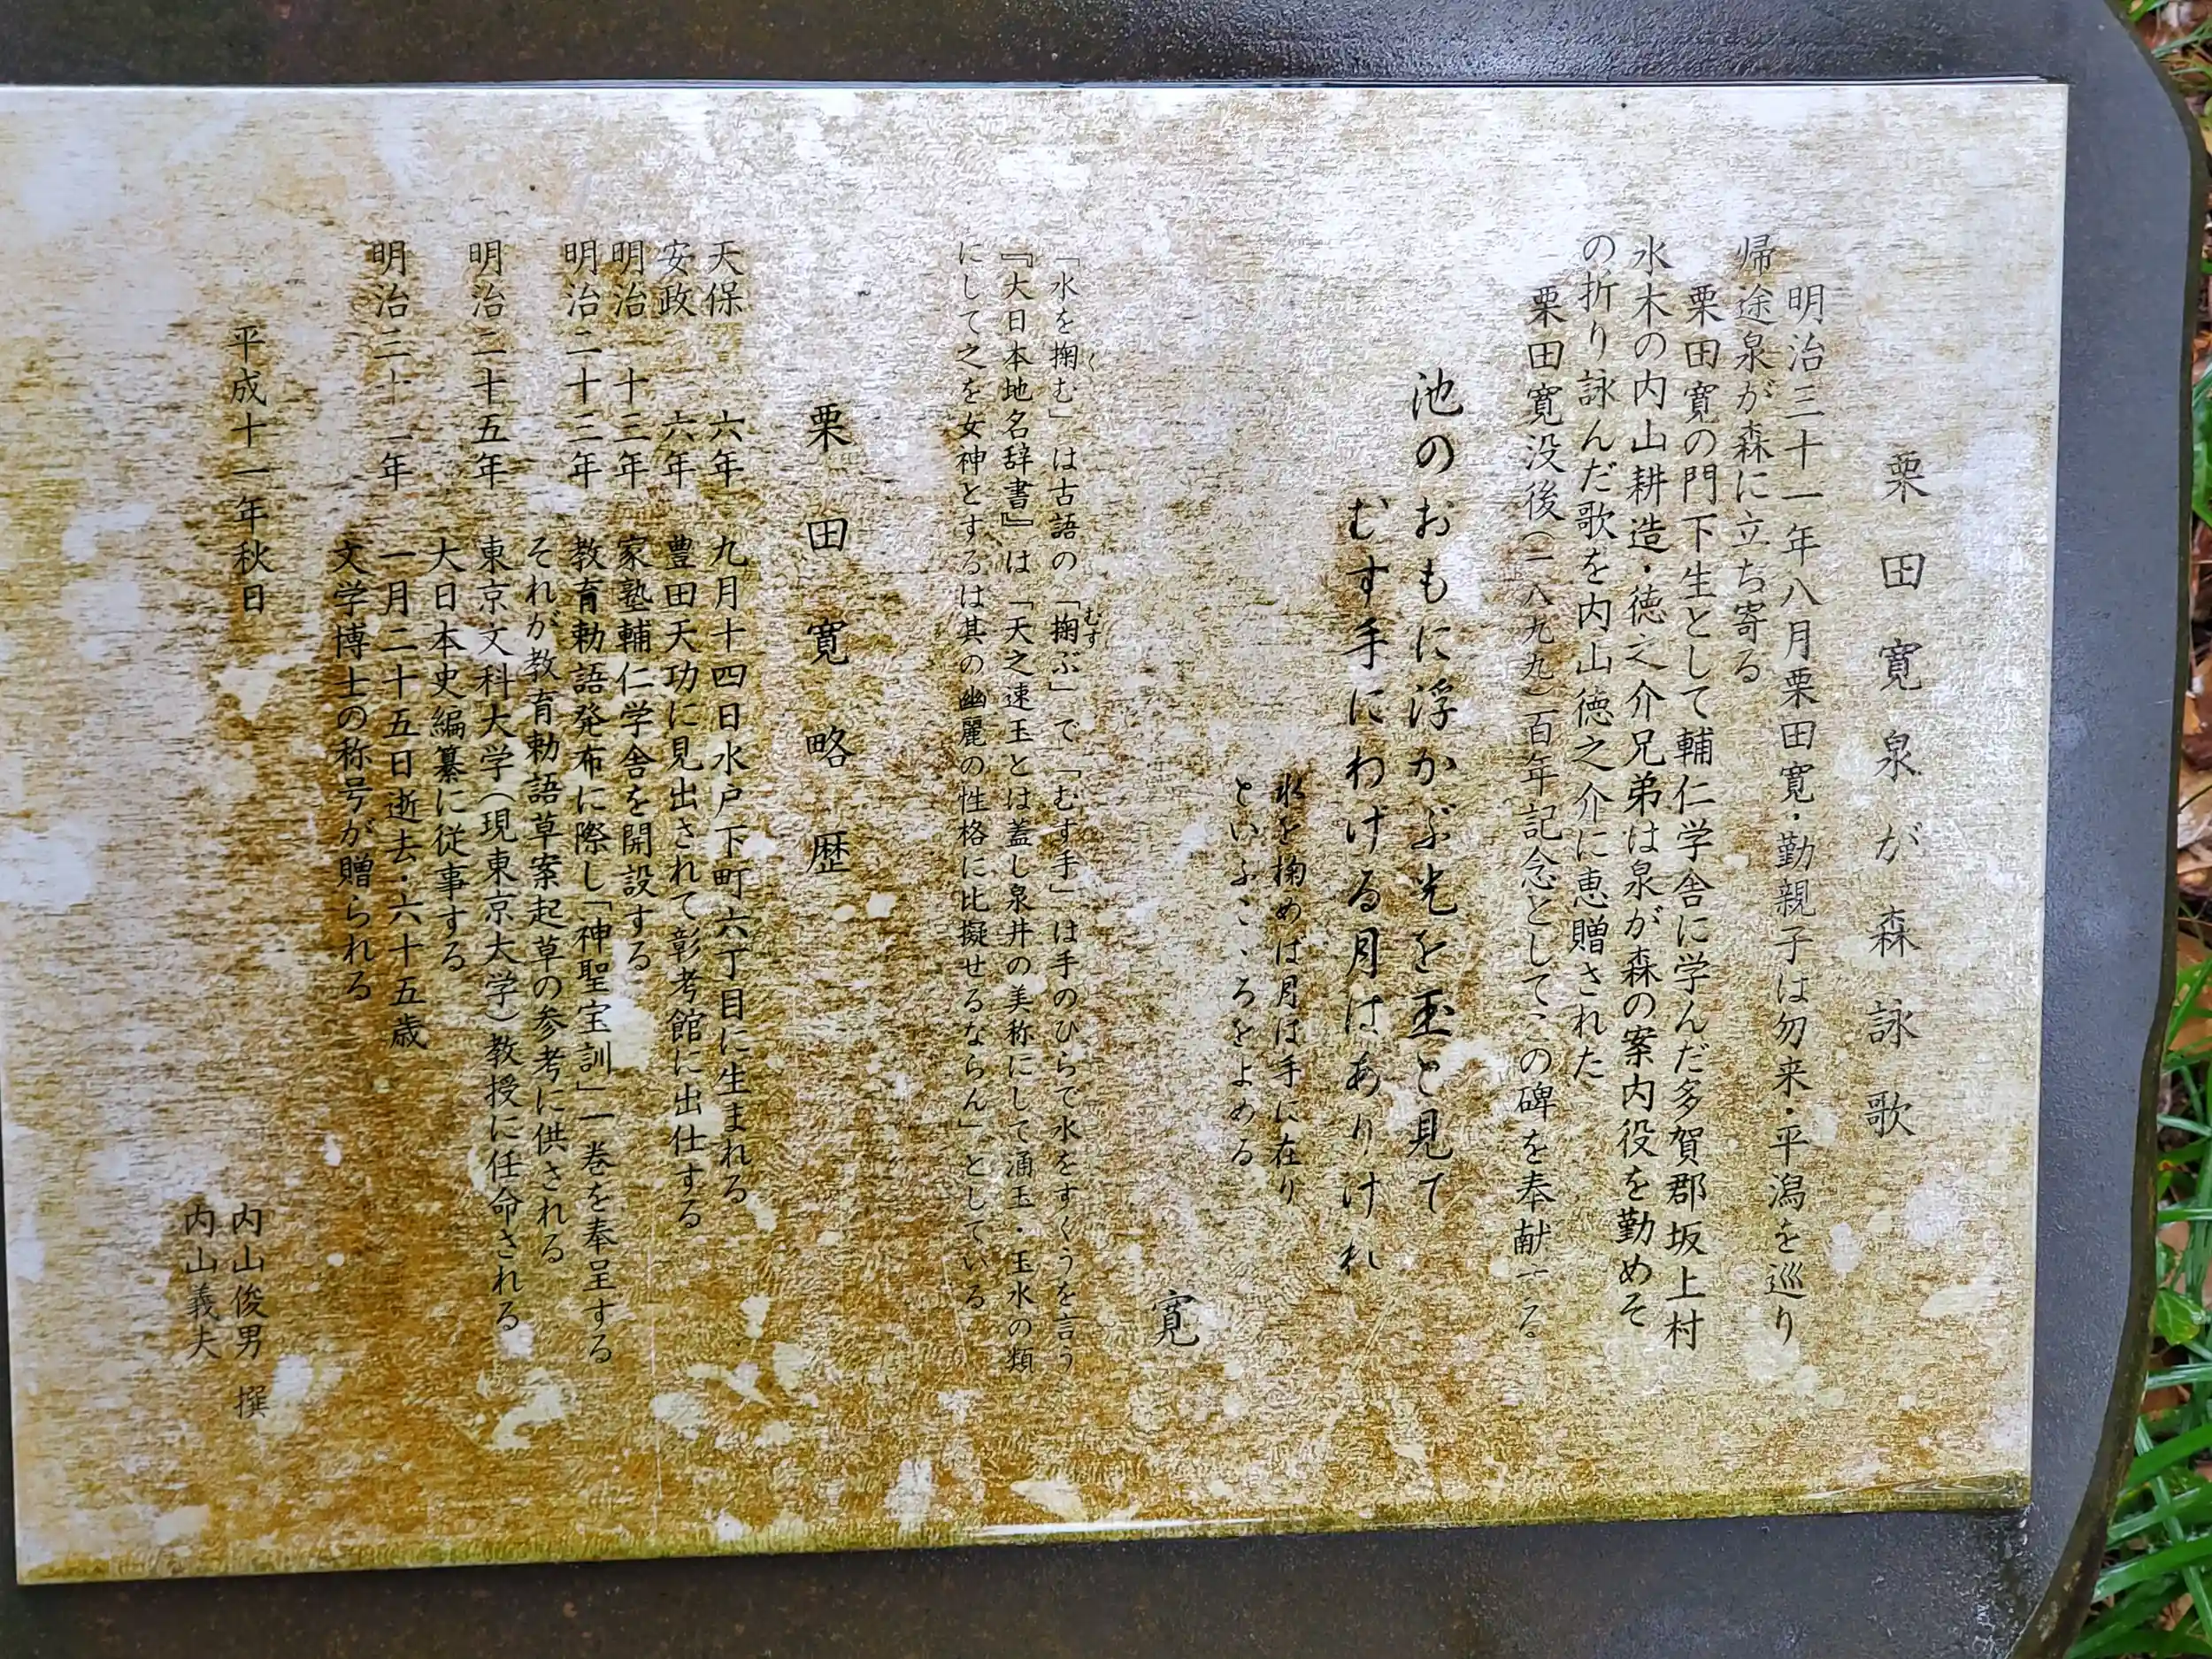 栗田寛泉が森詠歌
明治三十一年八月栗田寛・勤親子は勿来・平潟を巡り
帰途泉が森に立ち寄る
栗田寛の門下生として輔仁学舎に学んだ多賀郡坂上村
水木の内山耕造・徳之介兄弟は泉が森の案内役を勤めそ
の折り詠んだ歌を内山徳之介に恵贈された
栗田寛没後(一八九九)百年記念としてこの碑を奉献する
池のおもに浮かぶ光を玉と見て
むす手にわける月はありけれ
水を掬めは月は手に在り
といふこゝろをよめる
寛
「水を掬む」は古語の「掬ぶ」で「むす手」は手のひらで水をすくうを言う
『大日本地名辞書』は「天之速玉とは蓋し泉井の美称にして涌玉・玉水の類
にして之を女神とするは其の幽麗の性格に比擬せるならん」としている
栗田寛略歴
天保六年 九月十四日水戸下町六丁目に生まれる
安政六年 豊田天功に見出されて彰考館に出仕する
明治十三年 家塾輔仁学舎を開設する
明治二十三年 教育勅語発布に際し「神聖宝訓」一巻を奉呈する
それが教育勅語草案起草の参考に供される
明治二十五年 東京文科大学(現東京大学)教授に任命される
大日本史編纂に従事する
明治三十二年 一月二十五日逝去・六十五歳
文学博士の称号が贈られる
平成十一年秋日
内山俊男 撰
内山義夫